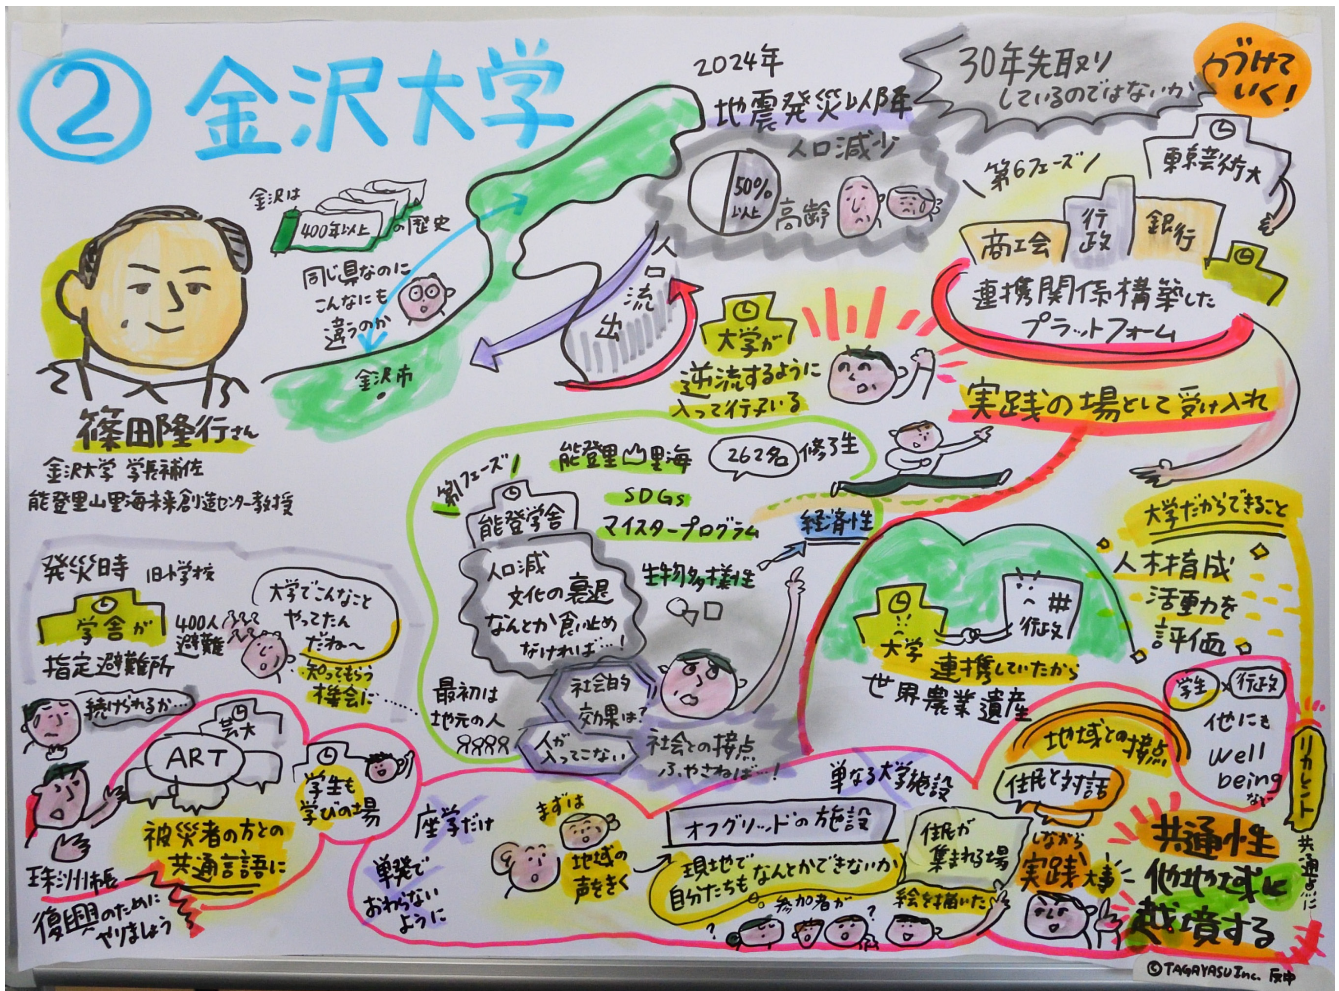 ② 金沢大学
金沢は
400年以上
の歴史
同じ県なのに
こんなにも
違うのか
金沢市
篠田隆行さん
金沢大学 学長補佐
能登里山里海未来創造センター教授
2024年
地震発災以降
人口減少
50%
以上
高齢
人口流出
30年先取り
しているのではないか
つづけて
いく!
大学が
逆流するように
入って行っている
第6フェーズ
東京芸術大
商工会
行政
銀行
連携関係構築した
プラットフォーム
実践の場として受け入れ
第1フェーズ
能登学舎
能登里山里海
SDGs
マイスタープログラム
262名
修了生
人口減
文化の衰退
なんとか食い止め
なければ…!
生物多様性
経済性
最初は
地元の人
社会的
効果は?
人が
入ってこない
社会との接点
ふやさねば…!
大学
行政
連携していたから
世界農業遺産
大学だからできること
人材育成
活動力を
評価
発災時
旧小学校
学舎が
指定避難所
400人
避難
大学でこんなこと
やってたん
だね〜
知ってもらう
機会に…
続けられるか…
芸大
ART
学生も
学びの場
被災者の方との
共通言語に
珠洲市長
復興のために
やりましょう
座学だけ
単発で
おわらない
ように
まずは
地域の
声をきく
単なる大学施設
オフグリッドの施設
現地でなんとかできないか
自分たちも
。参加者が
住民が
集まれる場
絵を描いた
地域との接点
住民と対話
しながら
実践大事
学生×行政
他にも
well
being
など
リカレント
共通点に
共通性
他地域に
越境する
©TAGAYASU Inc.